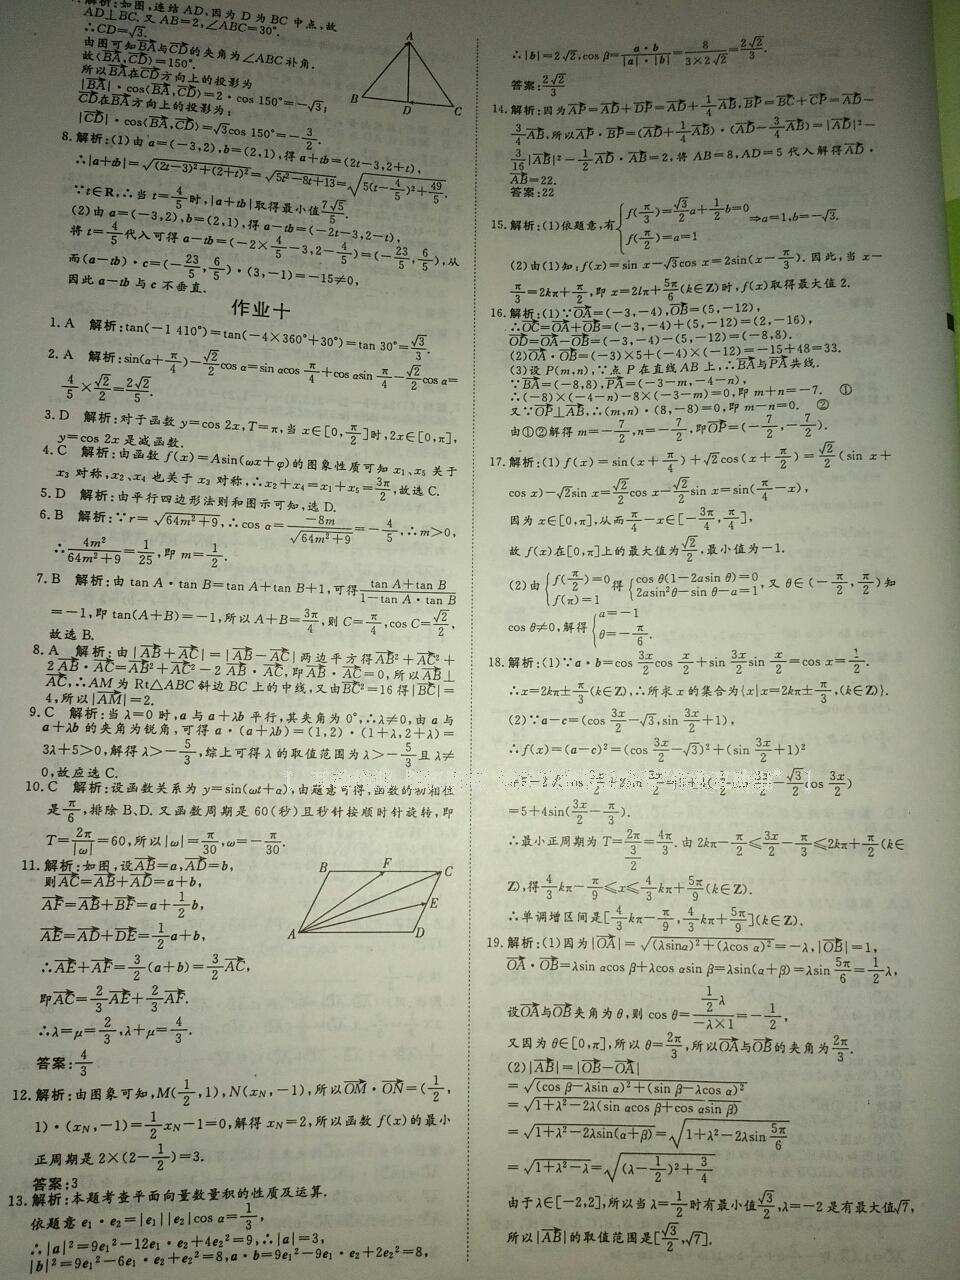 解析:如图,连结AD,因为D为BC中点,故
AD⊥BC.又AB=2,∠ABC=30°.
∴CD=√3.
由图可知BA与CD的夹角为∠ABC补角.
故⟨BA,CD⟩=150°.
所以BA在CD方向上的投影为
|BA|·cos⟨BA,CD⟩=2·cos 150°=-√3;
CD在BA方向上的投影为:
|CD|·cos⟨BA,CD⟩=√3cos 150°=-3/2.
A
B
D
C
8.解析:(1)由a=(-3,2),b=(2,1),得a+tb=(2t-3,2+t),
∴|a+tb|=√((2t-3)²+(2+t)²)=√(5t²-8t+13)=√(5(t-4/5)²+49/5).
∵t∈R,∴当t=4/5时,|a+tb|取得最小值7√5/5.
(2)由a=(-3,2),b=(2,1),得a-tb=(-2t-3,2-t),
将t=4/5代入可得a-tb=(-2×4/5-3,2-4/5)=(-23/5,6/5),从
而(a-tb)·c=(-23/5,6/5)·(3,-1)=-15≠0,
因此a-tb与c不垂直.
作业十
1.A 解析:tan(-1 410°)=tan(-4×360°+30°)=tan 30°=√3/3.
2.A 解析:sin(α+π/4)-√2/2cos α=sin αcos π/4+cos αsin π/4-√2/2cos α=
4/5×√2/2=2√2/5.
3.D 解析:对于函数y=cos 2x,T=π,当x∈[0,π/2]时,2x∈[0,π],
y=cos 2x是减函数.
4.C 解析:由函数f(x)=Asin(ωx+φ)的图象性质可知x₁、x₅关于
x₃对称,x₂、x₄也关于x₃对称,∴x₂+x₄=x₁+x₅=3π/2,故选C.
5.D 解析:由平行四边形法则和图示可知,选D.
6.B 解析:∵r=√(64m²+9),∴cos α=-8m/√(64m²+9)=-4/5,∴m>0,
∴4m²/(64m²+9)=1/25,即m=1/2.
7.B 解析:由tan A·tan B=tan A+tan B+1,可得(tan A+tan B)/(1-tan A·tan B)
=-1,即tan(A+B)=-1,所以A+B=3π/4,则C=π/4,cos C=√2/2,
故选B.
8.A 解析:由|AB+AC|=|AB-AC|两边平方得AB²+AC²+
2AB·AC=AB²+AC²-2AB·AC,即AB·AC=0,所以AB⊥
AC,∴AM为Rt△ABC斜边BC上的中线,又由BC²=16得|BC|=
4,所以|AM|=2.
9.C 解析:当λ=0时,a与a+λb平行,其夹角为0°,∴λ≠0,由a与
a+λb的夹角为锐角,可得a·(a+λb)=(1,2)·(1+λ,2+λ)=
3λ+5>0,解得λ>-5/3,综上可得λ的取值范围为λ>-5/3且λ≠
0,故应选C.
10.C 解析:设函数关系为y=sin(ωt+α),由题意可得,函数的初相位
是π/6,排除B、D.又函数周期是60(秒)且秒针按顺时针旋转,即
T=2π/|ω|=60,所以|ω|=π/30,ω=-π/30.
11.解析:如图,设AB=a,AD=b,
则AC=AB+AD=a+b,
AF=AB+BF=a+1/2b,
AE=AD+DE=1/2a+b,
∴AE+AF=3/2(a+b)=3/2AC,
即AC=2/3AE+2/3AF.
∴λ=μ=2/3,λ+μ=4/3.
答案:4/3
B
F
C
E
A
D
12.解析:由图象可知,M(1/2,1),N(x_N,-1),所以OM·ON=(1/2,
1)·(x_N,-1)=1/2x_N-1=0,解得x_N=2,所以函数f(x)的最小
正周期是2×(2-1/2)=3.
答案:3
13.解析:本题考查平面向量数量积的性质及运算.
依题意e₁·e₂=|e₁||e₂|cos α=1/3,
∴|a|²=9e₁²-12e₁·e₂+4e₂²=9,∴|a|=3,
|b|²=9e₁²-6e₁·e₂+e₂²=8,a·b=9e₁²-9e₁·e₂+2e₂²=8,
∴|b|=2√2,cos β=a·b/(|a|·|b|)=8/(3×2√2)=2√2/3.
答案:2√2/3
14.解析:因为AP=AD+DP=AD+1/4AB,BP=BC+CP=AD-
3/4AB,所以AP·BP=(AD+1/4AB)·(AD-3/4AB)=|AD|²-
3/16|AB|²-1/2AD·AB=2,将AB=8,AD=5代入解得AD·
AB=22.
答案:22
15.解析:(1)依题意,有{f(π/3)=√3/2a+1/2b=0 f(π/2)=a=1⇒a=1,b=-√3.
(2)由(1)知:f(x)=sin x-√3cos x=2sin(x-π/3).因此,当x-
π/3=2kπ+π/2,即x=2lπ+5π/6(k∈Z)时,f(x)取得最大值2.
16.解析:(1)∵OA=(-3,-4),OB=(5,-12),
∴OC=OA+OB=(-3,-4)+(5,-12)=(2,-16),
OD=OA-OB=(-3,-4)-(5,-12)=(-8,8).
(2)OA·OB=(-3)×5+(-4)×(-12)=-15+48=33.
(3)设P(m,n),∵点P在直线AB上,∴BA与PA共线.
∵BA=(-8,8),PA=(-3-m,-4-n),
∴(-8)×(-4-n)-8×(-3-m)=0,即m+n=-7. ①
又∵OP⊥AB,∴(m,n)·(8,-8)=0,即m-n=0. ②
由①②解得m=-7/2,n=-7/2,即OP=(-7/2,-7/2).
17.解析:(1)f(x)=sin(x+π/4)+√2cos(x+π/2)=√2/2(sin x+
cos x)-√2sin x=√2/2cos x-√2/2sin x=sin(π/4-x),
因为x∈[0,π],从而π/4-x∈[-3π/4,π/4],
故f(x)在[0,π]上的最大值为√2/2,最小值为-1.
(2)由{f(π/2)=0 f(π)=1得{cos θ(1-2asin θ)=0 2asin²θ-sin θ-a=1,又θ∈(-π/2,π/2)知
cos θ≠0,解得{a=-1 θ=-π/6.
18.解析:(1)∵a·b=cos 3x/2cos x/2+sin 3x/2sin x/2=cos x=1/2.
∴x=2kπ±π/3(k∈Z),∴所求x的集合为{x|x=2kπ±π/3,(k∈Z)}.
(2)∵a-c=(cos 3x/2-√3,sin 3x/2+1),
∴f(x)=(a-c)²=(cos 3x/2-√3)²+(sin 3x/2+1)²
=5+4sin(3x/2-π/3).
∴最小正周期为T=2π/(3/2)=4π/3.由2kπ-π/2≤3x/2-π/3≤2kπ+π/2(k∈
Z),得4/3kπ-π/9≤x≤4/3kπ+5π/9(k∈Z).
∴单调增区间是[4/3kπ-π/9,4/3kπ+5π/9](k∈Z).
19.解析:(1)因为|OA|=√((λsinα)²+(λcos α)²)=-λ,|OB|=1,
OA·OB=λsin αcos β+λcos αsin β=λsin(α+β)=λsin 5π/6=1/2λ,
设OA与OB夹角为θ,则cos θ=(1/2λ)/(-λ×1)=-1/2,
又因为θ∈[0,π],所以θ=2π/3,所以OA与OB的夹角为2π/3.
(2)|AB|=|OB-OA|
=√((cos β-λsin α)²+(sin β-λcos α)²)
=√(1+λ²-2λ(sin αcos β+cos αsin β))
=√(1+λ²-2λsin(α+β))=√(1+λ²-2λsin 5π/6)
=√(1+λ²-λ)=√((λ-1/2)²+3/4)
由于λ∈[-2,2],所以当λ=1/2时有最小值√3/2,λ=-2是有最大值√7,
所以|AB|的取值范围是[√3/2,√7].